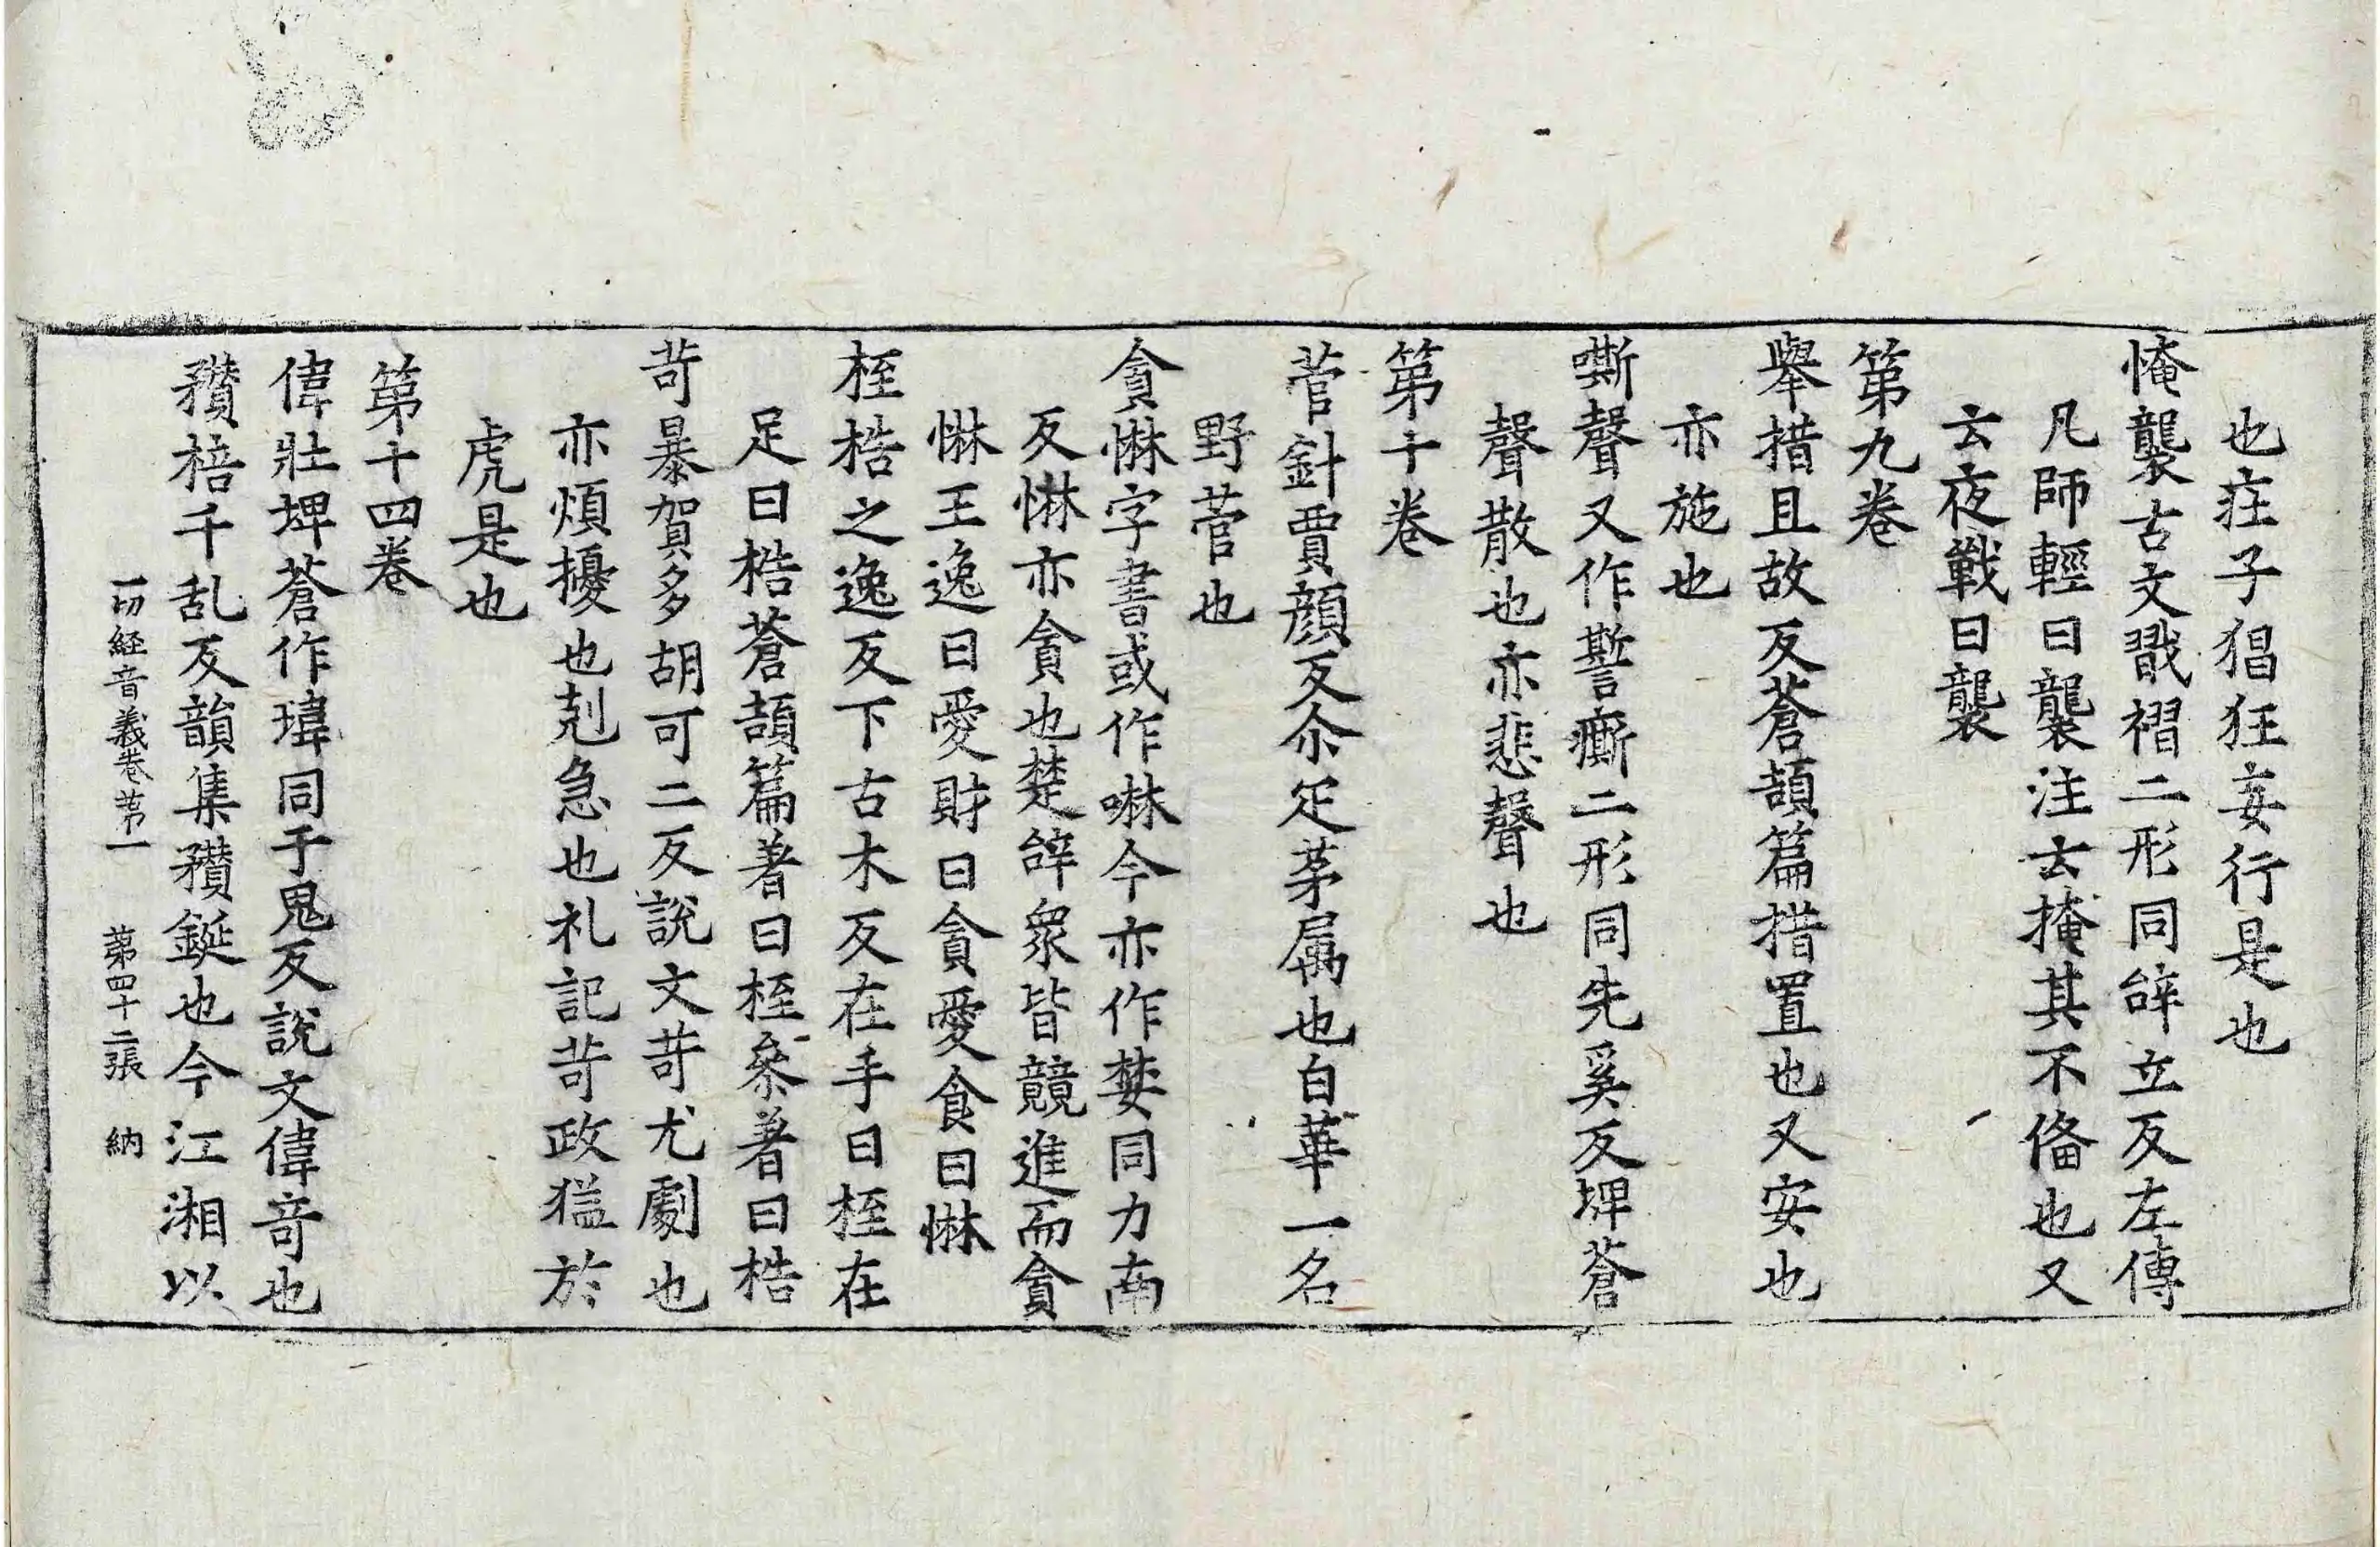 也疰子猖狂妄行是也
掩襲古文戩褶二形同辝立反左傳
凡師輕曰襲注云掩其不俻也又
云夜戰曰襲
第九卷
舉措且故反蒼頡篇措置也又安也
亦施也
嘶聲又作誓㿄二形同先奚反埤蒼
聲散也亦悲聲也
第十卷
菅針賈顔反尒疋茅属也白華一名
野菅也
貪惏字書或作啉今亦作婪同力南
反惏亦貪也楚辝衆皆競進而貪
惏王逸曰愛財曰貪愛食曰惏
桎梏之逸反下古木反在手曰桎在
足曰梏蒼頡篇著曰桎叅著曰梏
苛暴賀多胡可二反說文苛尤劇也
亦煩擾也剋急也礼記苛政猛於
虎是也
第十四卷
偉壯埤蒼作瑋同于鬼反說文偉竒也
穳棓千乱反韻集穳鋋也今江湘以
一切経音義卷苐一 苐四十二張 納